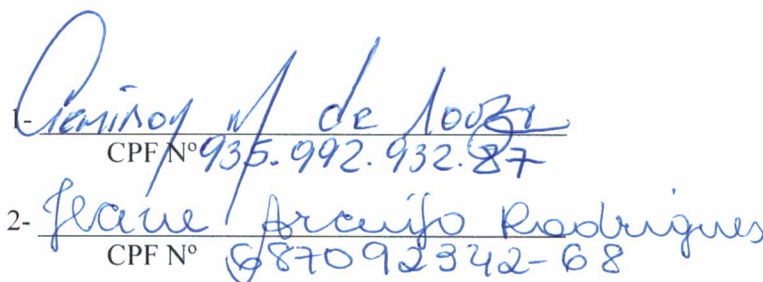 1- M de Souza
CPF Nº 935.992.932.87
2- Jeane Araujo Rodrigues
CPF Nº 687092342-68